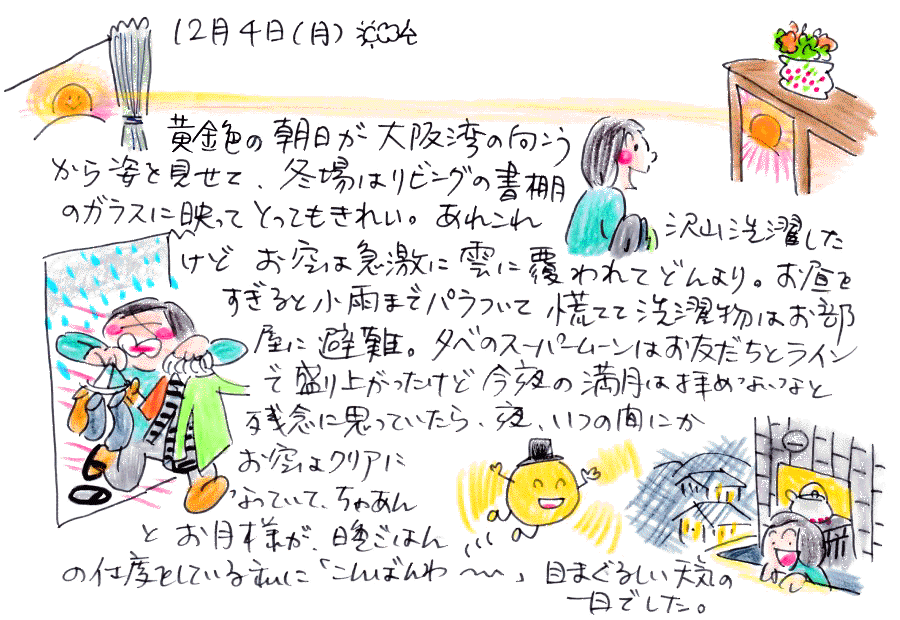 12月4日(月)
黄金色の朝日が大阪湾の向こう
から姿を見せて、冬場はリビングの書棚
のガラスに映ってとってもきれい。あれこれ
沢山洗濯した
けどお空は急激に雲に覆われてどんより。お昼を
すぎると小雨までパラついて慌てて洗濯物はお部
屋に避難。夕べのスーパームーンはお友だちとライン
で盛り上がったけど今夜の満月は拝めないなと
残念に思っていたら、夜、いつの間にか
お空はクリアに
なっていて、ちゃあん
とお月様が、晩ごはん
の仕度をしている私に「こんばんわ〜〜」目まぐるしい天気の
一日でした。